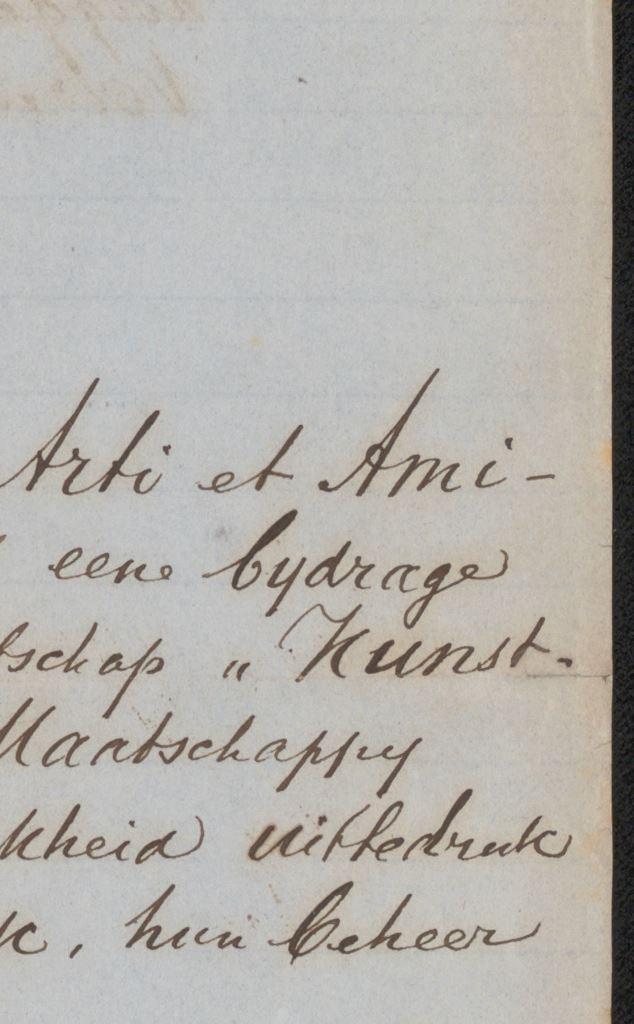 Arti et Ami-
eene bydrage
tschap „ Kunst-
Maatschappy
kheid uittedruk
k, hun beheer